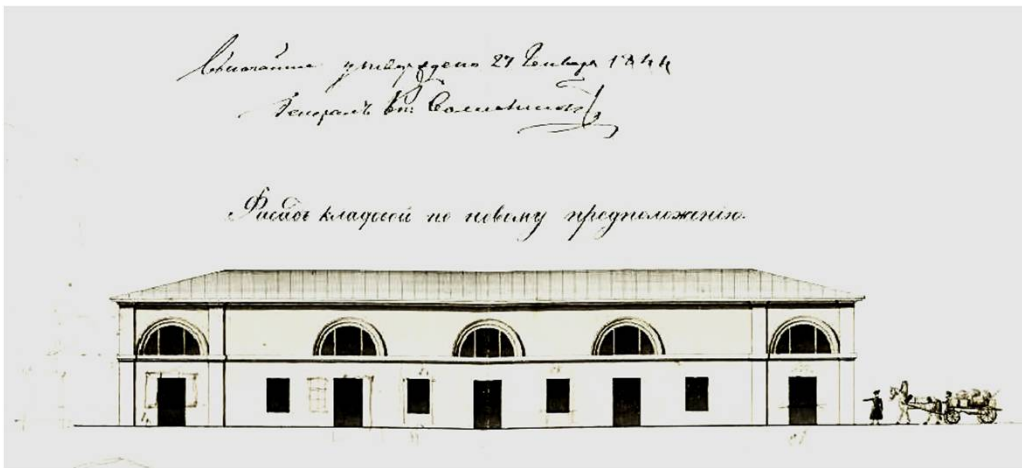 Высочайше утверждено 27 Генваря 1844
Генералъ
Фасадъ кладовой по новому предположенію.